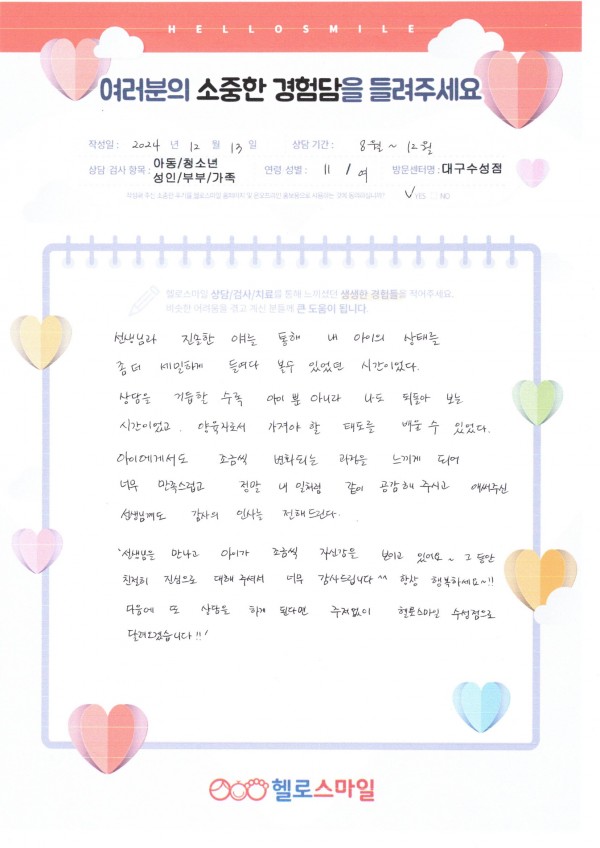 HELLOSMILE
여러분의 소중한 경험담을 들려주세요
작성일 : 2024 년 12 월 13 일 상담 기간 : 8월 ~ 12월
상담 검사 항목 : 아동/청소년 성인/부부/가족 연령 성별 : 11 / 여 방문센터명 : 대구수성점
작성해 주신 소중한 수기를 헬로스마일 홈페이지 및 온오프라인 홍보용으로 사용하는 것에 동의하십니까? ✓YES □ NO
헬로스마일 상담/검사/치료를 통해 느끼셨던 생생한 경험들을 적어주세요.
비슷한 어려움을 겪고 계신 분들께 큰 도움이 됩니다.
선생님과 진솔한 얘기를 통해 내 아이의 상태를
좀 더 세밀하게 들여다 볼수 있었던 시간이었다.
상담을 거듭할 수록 아이 뿐 아니라 나도 되돌아 보는
시간이었고, 양육자로서 가져야 할 태도를 배울 수 있었다.
아이에게서도 조금씩 변화되는 과정을 느끼게 되어
너무 만족스럽고 정말 내 일처럼 같이 공감해 주시고 애써주신
선생님께도 감사의 인사를 전해드린다.
'선생님을 만나고 아이가 조금씩 자신감을 보이고 있어요~ 그동안
친절히 진심으로 대해 주셔서 너무 감사드립니다 ^^ 항상 행복하세요~!!
다음에 또 상담을 하게 된다면 주저없이 헬로스마일 수성점으로
달려오겠습니다!!'
헬로스마일